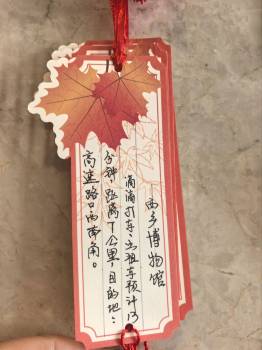 西乡博物馆
滴滴打车：出租车预计13
分钟，距离7公里，目的地：
高速路口西南角。